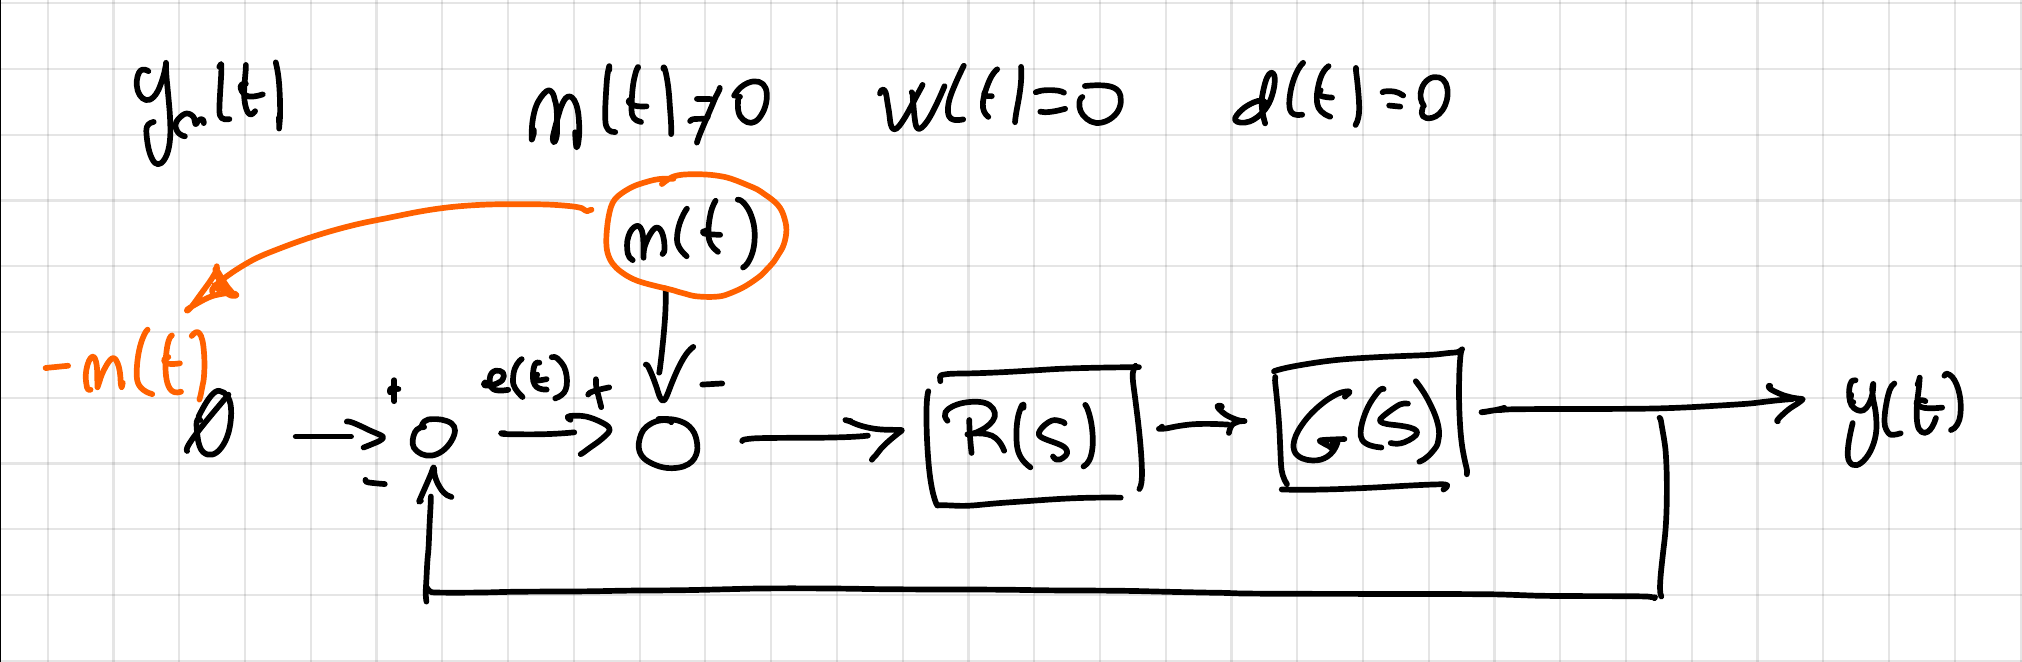 yₙ(t) n(t)≠0 w(t)=0 d(t)=0
n(t)
-n(t)
+ e(t) + -
0 R(s) G(s) y(t)
-